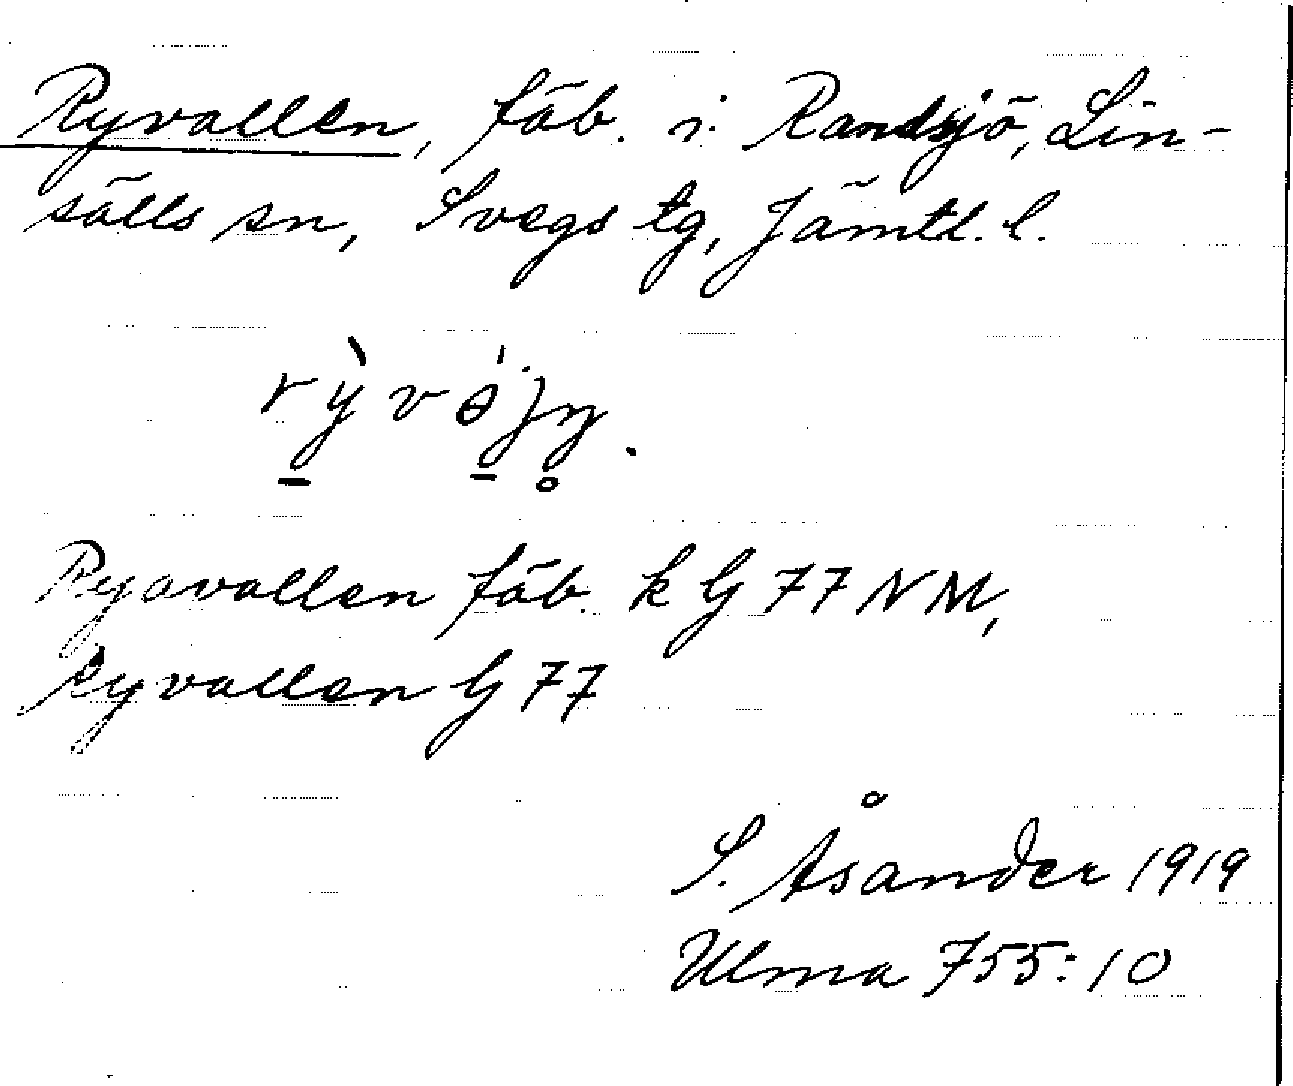 Ryvallen, fäb. i Randsjö, Lin-
sälls sn, Svegs tg, Jämtl. l.
Ryavallen fäb. k G 77 NM,
Ryvallen G 77
S. Åsander 1919
Ulma 755:10